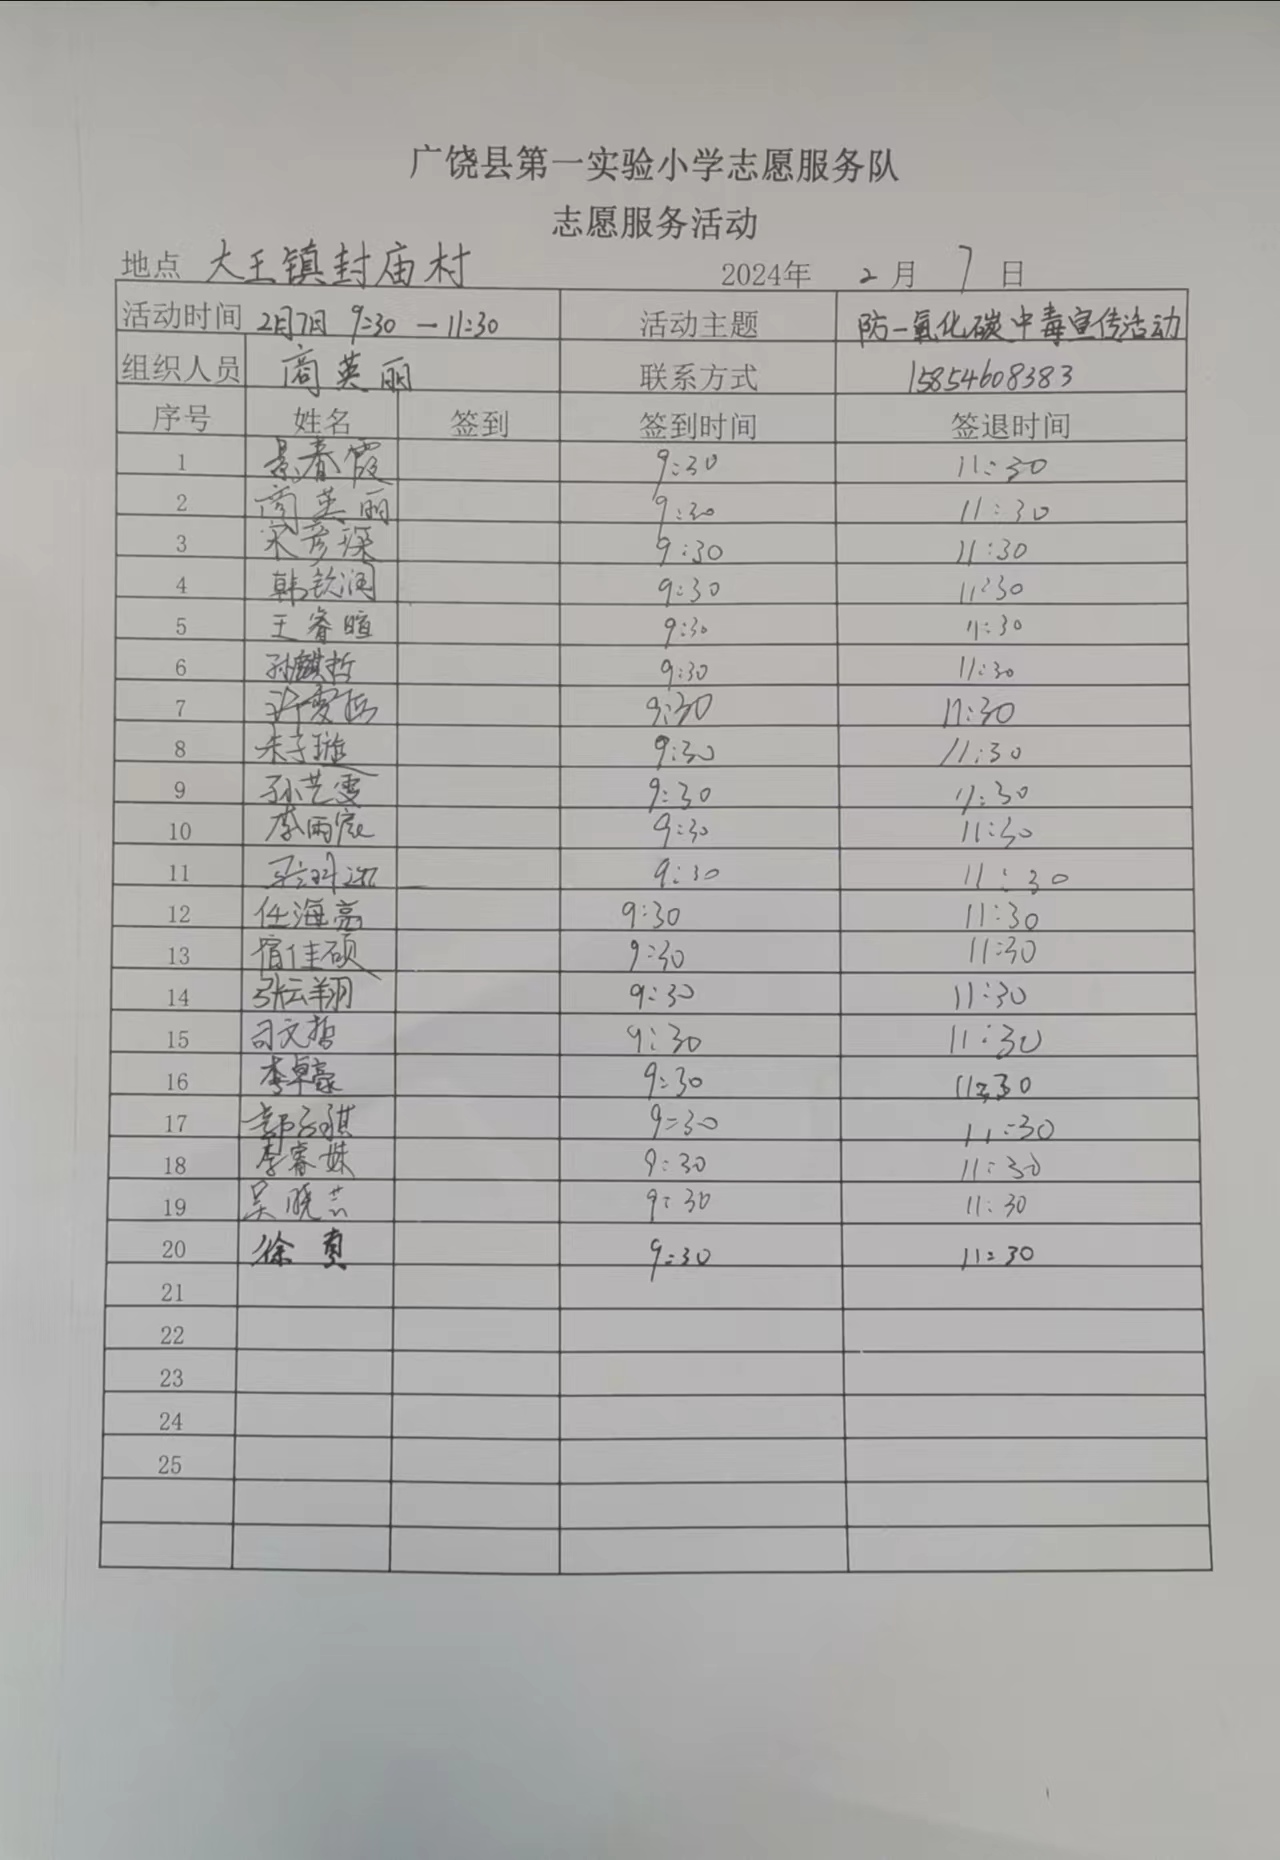 广饶县第一实验小学志愿服务队
志愿服务活动
地点 大王镇封庙村 2024年 2 月 7 日
活动时间 2月7日 9:30 — 11:30 活动主题 防一氧化碳中毒宣传活动
组织人员 商英丽 联系方式 15854608383
序号 姓名 签到 签到时间 签退时间
1 景春霞 9:30 11:30
2 商英丽 9:30 11:30
3 宋彦琛 9:30 11:30
4 韩钦润 9:30 11:30
5 王睿暄 9:30 11:30
6 孙麒哲 9:30 11:30
7 9:30 11:30
8 朱子璇 9:30 11:30
9 孙艺雯 9:30 11:30
10 李雨宸 9:30 11:30
11 9:30 11:30
12 任海亮 9:30 11:30
13 宿佳硕 9:30 11:30
14 张云翔 9:30 11:30
15 司文哲 9:30 11:30
16 李卓豪 9:30 11:30
17 9:30 11:30
18 李睿姝 9:30 11:30
19 吴晓芸 9:30 11:30
20 徐真 9:30 11:30
21
22
23
24
25